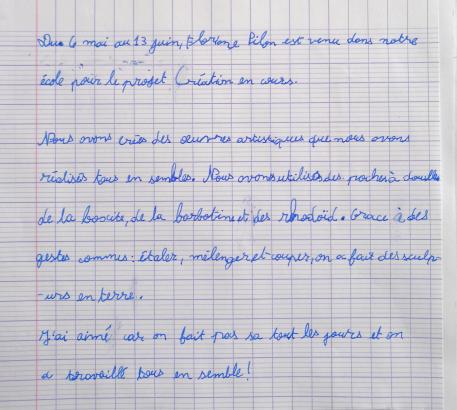 Du 6 mai au 13 juin, Floriane Pilon est venu dans notre
école pour le projet Création en cours.
Nous avons crées des œuvres artistiques que nous avons
réalisés tous en sembles. Nous avons utilisés des poches à douilles
de la boscite, de la barbotine et des rhodoïd. Grace à des
gestes commes : étaler, mélenger et couper, on a fait des sculp-
-urs en terre.
J'ai aimé car on fait pas sa tout les jours et on
a travaillé tous en semble !